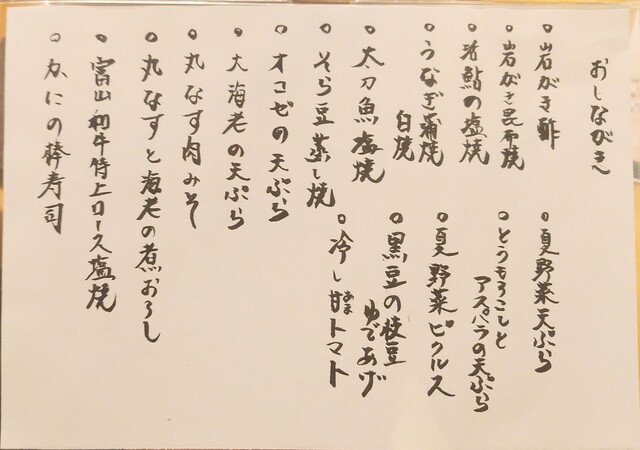 おしながき
○岩がき酢
○岩がき昆布焼
○活鮎の塩焼
○うなぎ蒲焼
白焼
○太刀魚塩焼
○そら豆蒸し焼
○オコゼの天ぷら
○大海老の天ぷら
○丸なす肉みそ
○丸なすと海老の煮おろし
○富山和牛特上ロース塩焼
○かにの棒寿司
○夏野菜天ぷら
○とうもろこしと
アスパラの天ぷら
○夏野菜ピクルス
○黒豆の枝豆
ゆであげ
○冷し甘トマト
あま